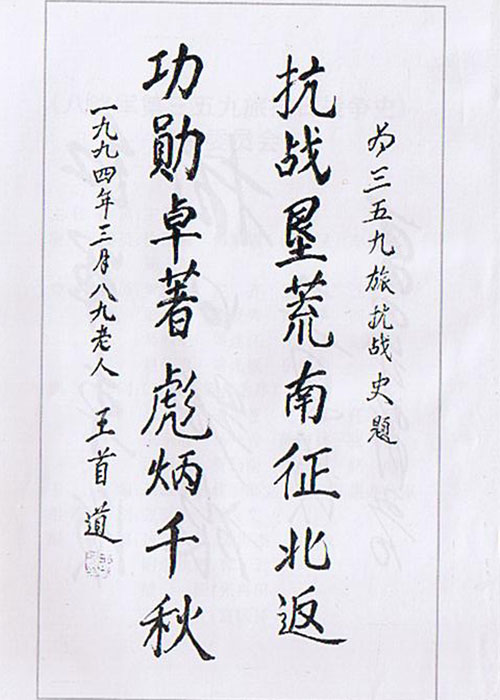 为三五九旅抗战史题
抗战垦荒南征北返
功勋卓著彪炳千秋
一九九四年三月八九老人王首道